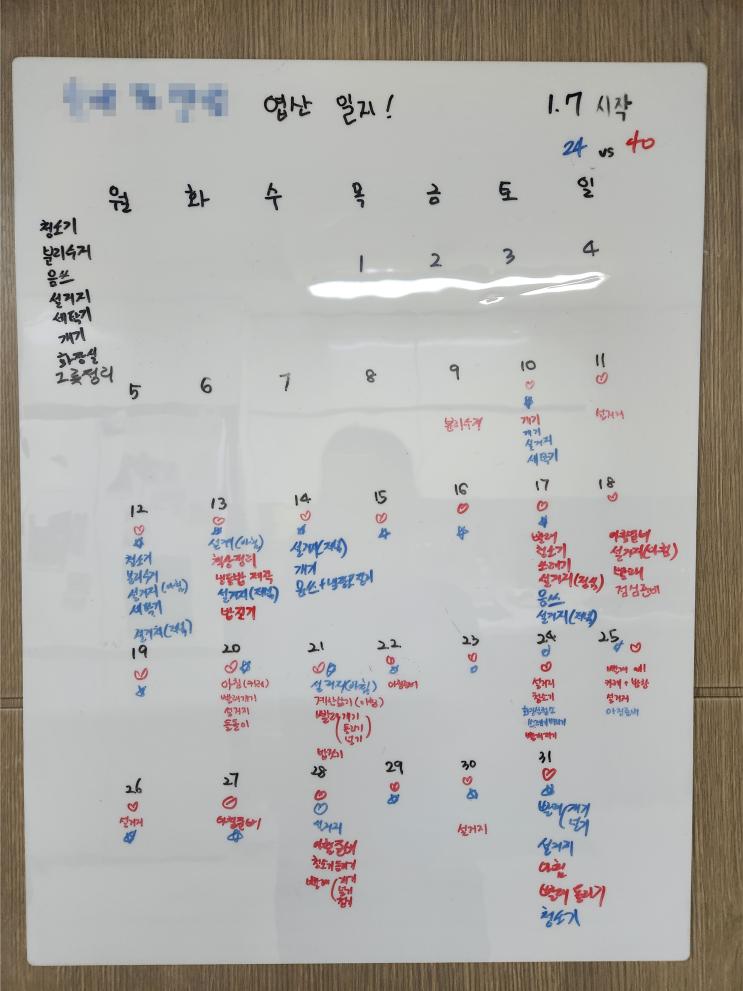 엽산 일지!
1.7 시작
24 vs 40
월 화 수 목 금 토 일
청소기
분리수거
음쓰
설거지
세탁기
개기
화장실
그릇정리
1 2 3 4
5 6 7 8 9 10 11
분리수거
개기
개기
설거지
세탁기
설거지
12 13 14 15 16 17 18
청소기
분리수거
설거지(아침)
세탁기
설거지(저녁)
설거지(아침)
책상정리
냉동밥 제작
설거지(저녁)
밥짓기
설거지(저녁)
개기
빨래
청소기
쓰레기
설거지(점심)
음쓰
설거지(저녁)
아침준비
설거지(아침)
빨래
점심준비
19 20 21 22 23 24 25
아침(카레)
빨래개기
설거지
돌돌이
설거지(아침)
빨래 개기
돌리기
널기
밥짓기
아침준비
설거지
청소기
설거지
아침준비
26 27 28 29 30 31
설거지
아침준비
설거지
아침준비
청소기 돌리기
빨래 개기
널기
설거지
빨래 개기
널기
설거지
아침
빨래 돌리기
청소기